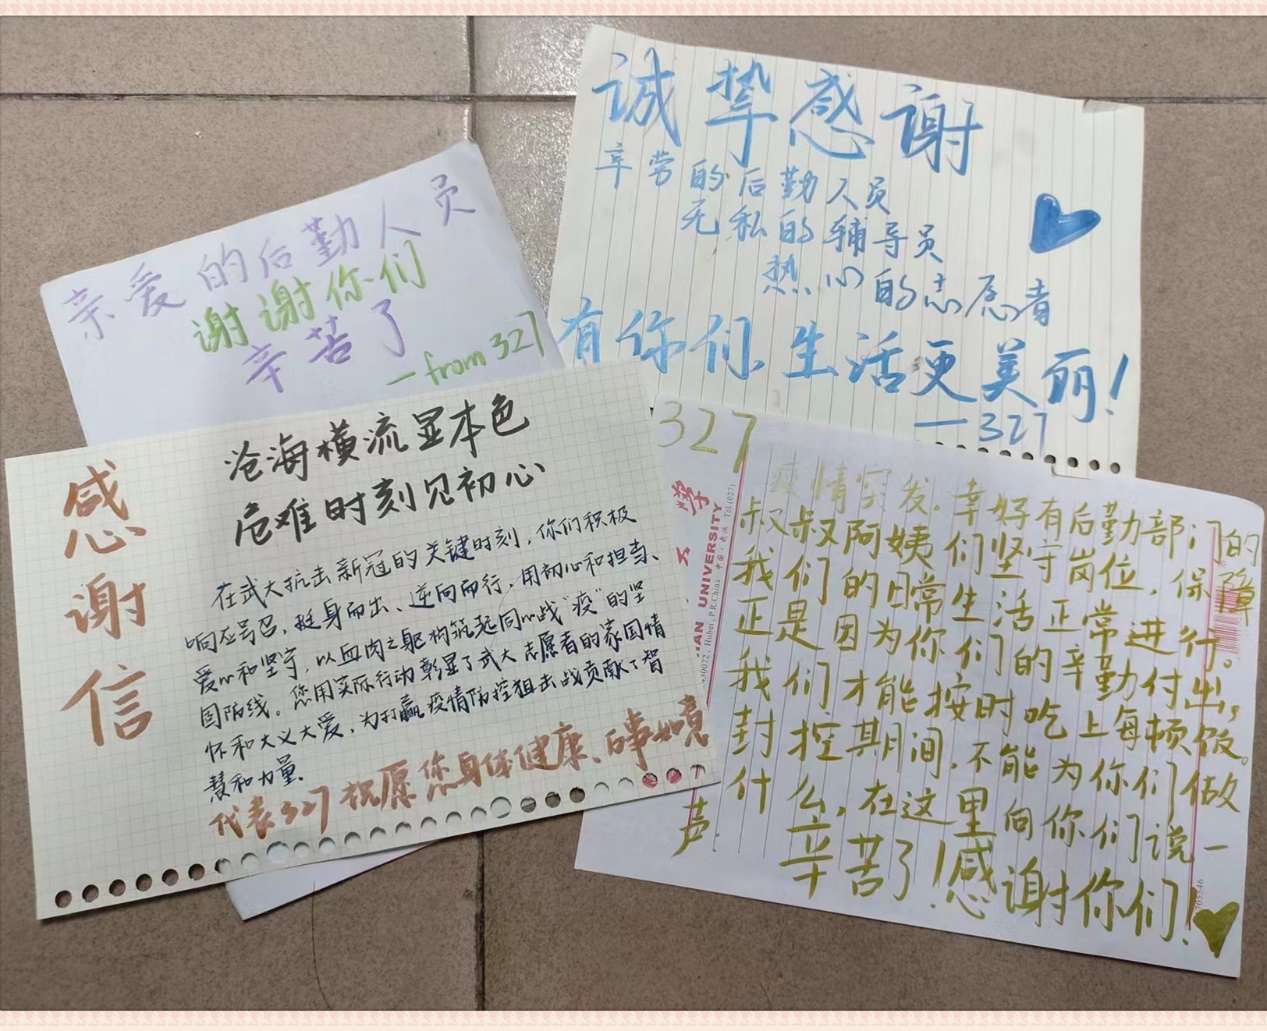 诚挚感谢
辛劳的后勤人员
无私的辅导员
热心的志愿者
有你们生活更美丽!
—327
亲爱的后勤人员
谢谢你们
辛苦了
—from 327
感谢信
沧海横流显本色
危难时刻见初心
在武大抗击新冠的关键时刻,你们积极
响应号召,挺身而出、逆向而行,用初心和担当、
爱心和坚守,以血肉之躯构筑起同心战“疫”的坚
固防线。您用实际行动彰显了武大志愿者的家国情
怀和大义大爱,为打赢疫情防控狙击战贡献了智
慧和力量.
代表327祝愿您身体健康、百事如意
327
疫情突发,幸好有后勤部门的
叔叔阿姨们坚守岗位,保障
我们的日常生活正常进行。
正是因为你们的辛勤付出,
我们才能按时吃上每顿饭。
封控期间,不能为你们做
什么,在这里向你们说一
声:
辛苦了!感谢你们!
HAN UNIVERSITY
430072, Hubei, P.R.China 中国·武汉 Tel.(027)